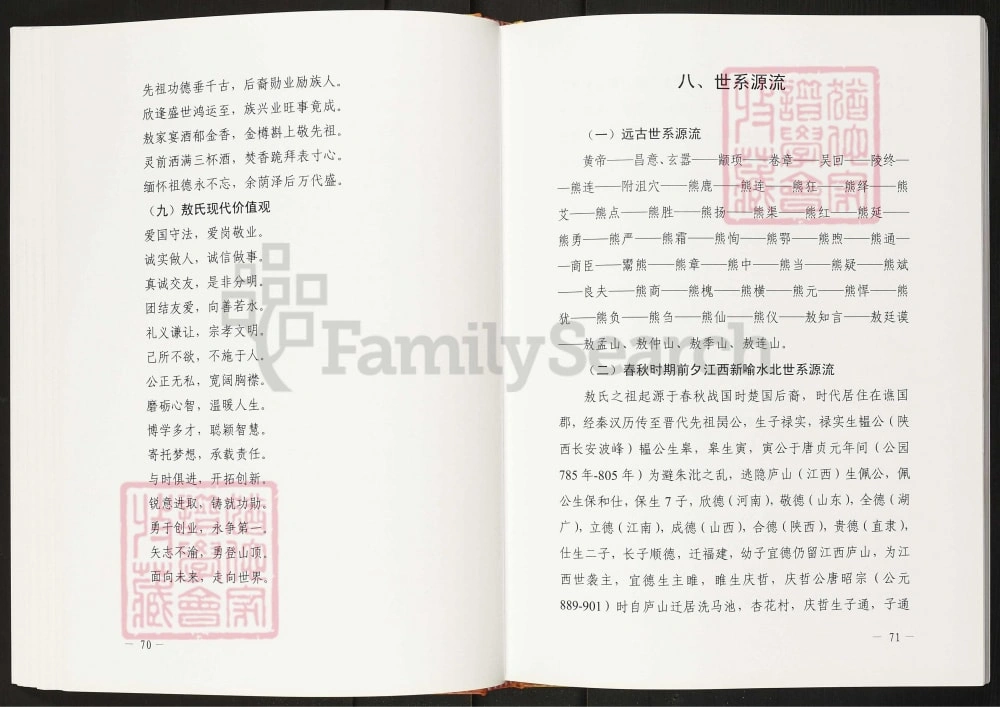 先祖功德垂千古，后裔勋业励族人。
欣逢盛世鸿运至，族兴业旺事竟成。
敖家宴酒郁金香，金樽斟上敬先祖。
灵前洒满三杯酒，焚香跪拜表寸心。
缅怀祖德永不忘，余荫泽后万代盛。
（九）敖氏现代价值观
爱国守法，爱岗敬业。
诚实做人，诚信做事。
真诚交友，是非分明。
团结友爱，向善若水。
礼义谦让，宗孝文明。
己所不欲，不施于人。
公正无私，宽阔胸襟。
磨砺心智，温暖人生。
博学多才，聪颖智慧。
寄托梦想，承载责任。
与时俱进，开拓创新。
锐意进取，铸就功勋。
勇于创业，永争第一。
矢志不渝，勇登山顶。
面向未来，走向世界。
— 70 —
八、世系源流
（一）远古世系源流
黄帝——昌意、玄嚣——颛顼——卷章——吴回——陵终—
—熊连——附沮穴——熊鹿——熊连——熊狂——熊绎——熊
艾——熊点——熊胜——熊扬——熊渠——熊红——熊延——
熊勇——熊严——熊霜——熊恂——熊鄂——熊煦——熊通—
—商臣——鬻熊——熊章——熊中——熊当——熊疑——熊斌
——良夫——熊商——熊槐——熊横——熊元——熊悍——熊
犹——熊负——熊刍——熊仙——熊仪——敖知言——敖廷谟
——敖孟山、敖仲山、敖季山、敖连山。
（二）春秋时期前夕江西新喻水北世系源流
敖氏之祖起源于春秋战国时楚国后裔，时代居住在谯国
郡，经秦汉历传至晋代先祖昃公，生子禄实，禄实生韫公（陕
西长安波峰）韫公生皋，皋生寅，寅公于唐贞元年间（公园
785 年-805 年）为避朱泚之乱，逃隐庐山（江西）生佩公，佩
公生保和仕，保生 7 子，欣德（河南），敬德（山东），全德（湖
广），立德（江南），成德（山西），合德（陕西），贵德（直隶），
仕生二子，长子顺德，迁福建，幼子宜德仍留江西庐山，为江
西世袭主，宜德生主睢，睢生庆哲，庆哲公唐昭宗（公元
889-901）时自庐山迁居洗马池，杏花村，庆哲生子通，子通
— 71 —
FamilySearch